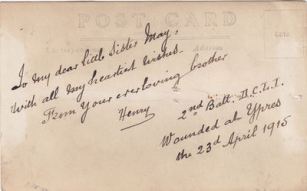 POST CARD
Address
To my dear little Sister May,
With all my heartiest wishes.
From your everloving brother
Henry
2nd Batt. D.C.L.I.
Wounded at Ypres
the 23rd April 1915